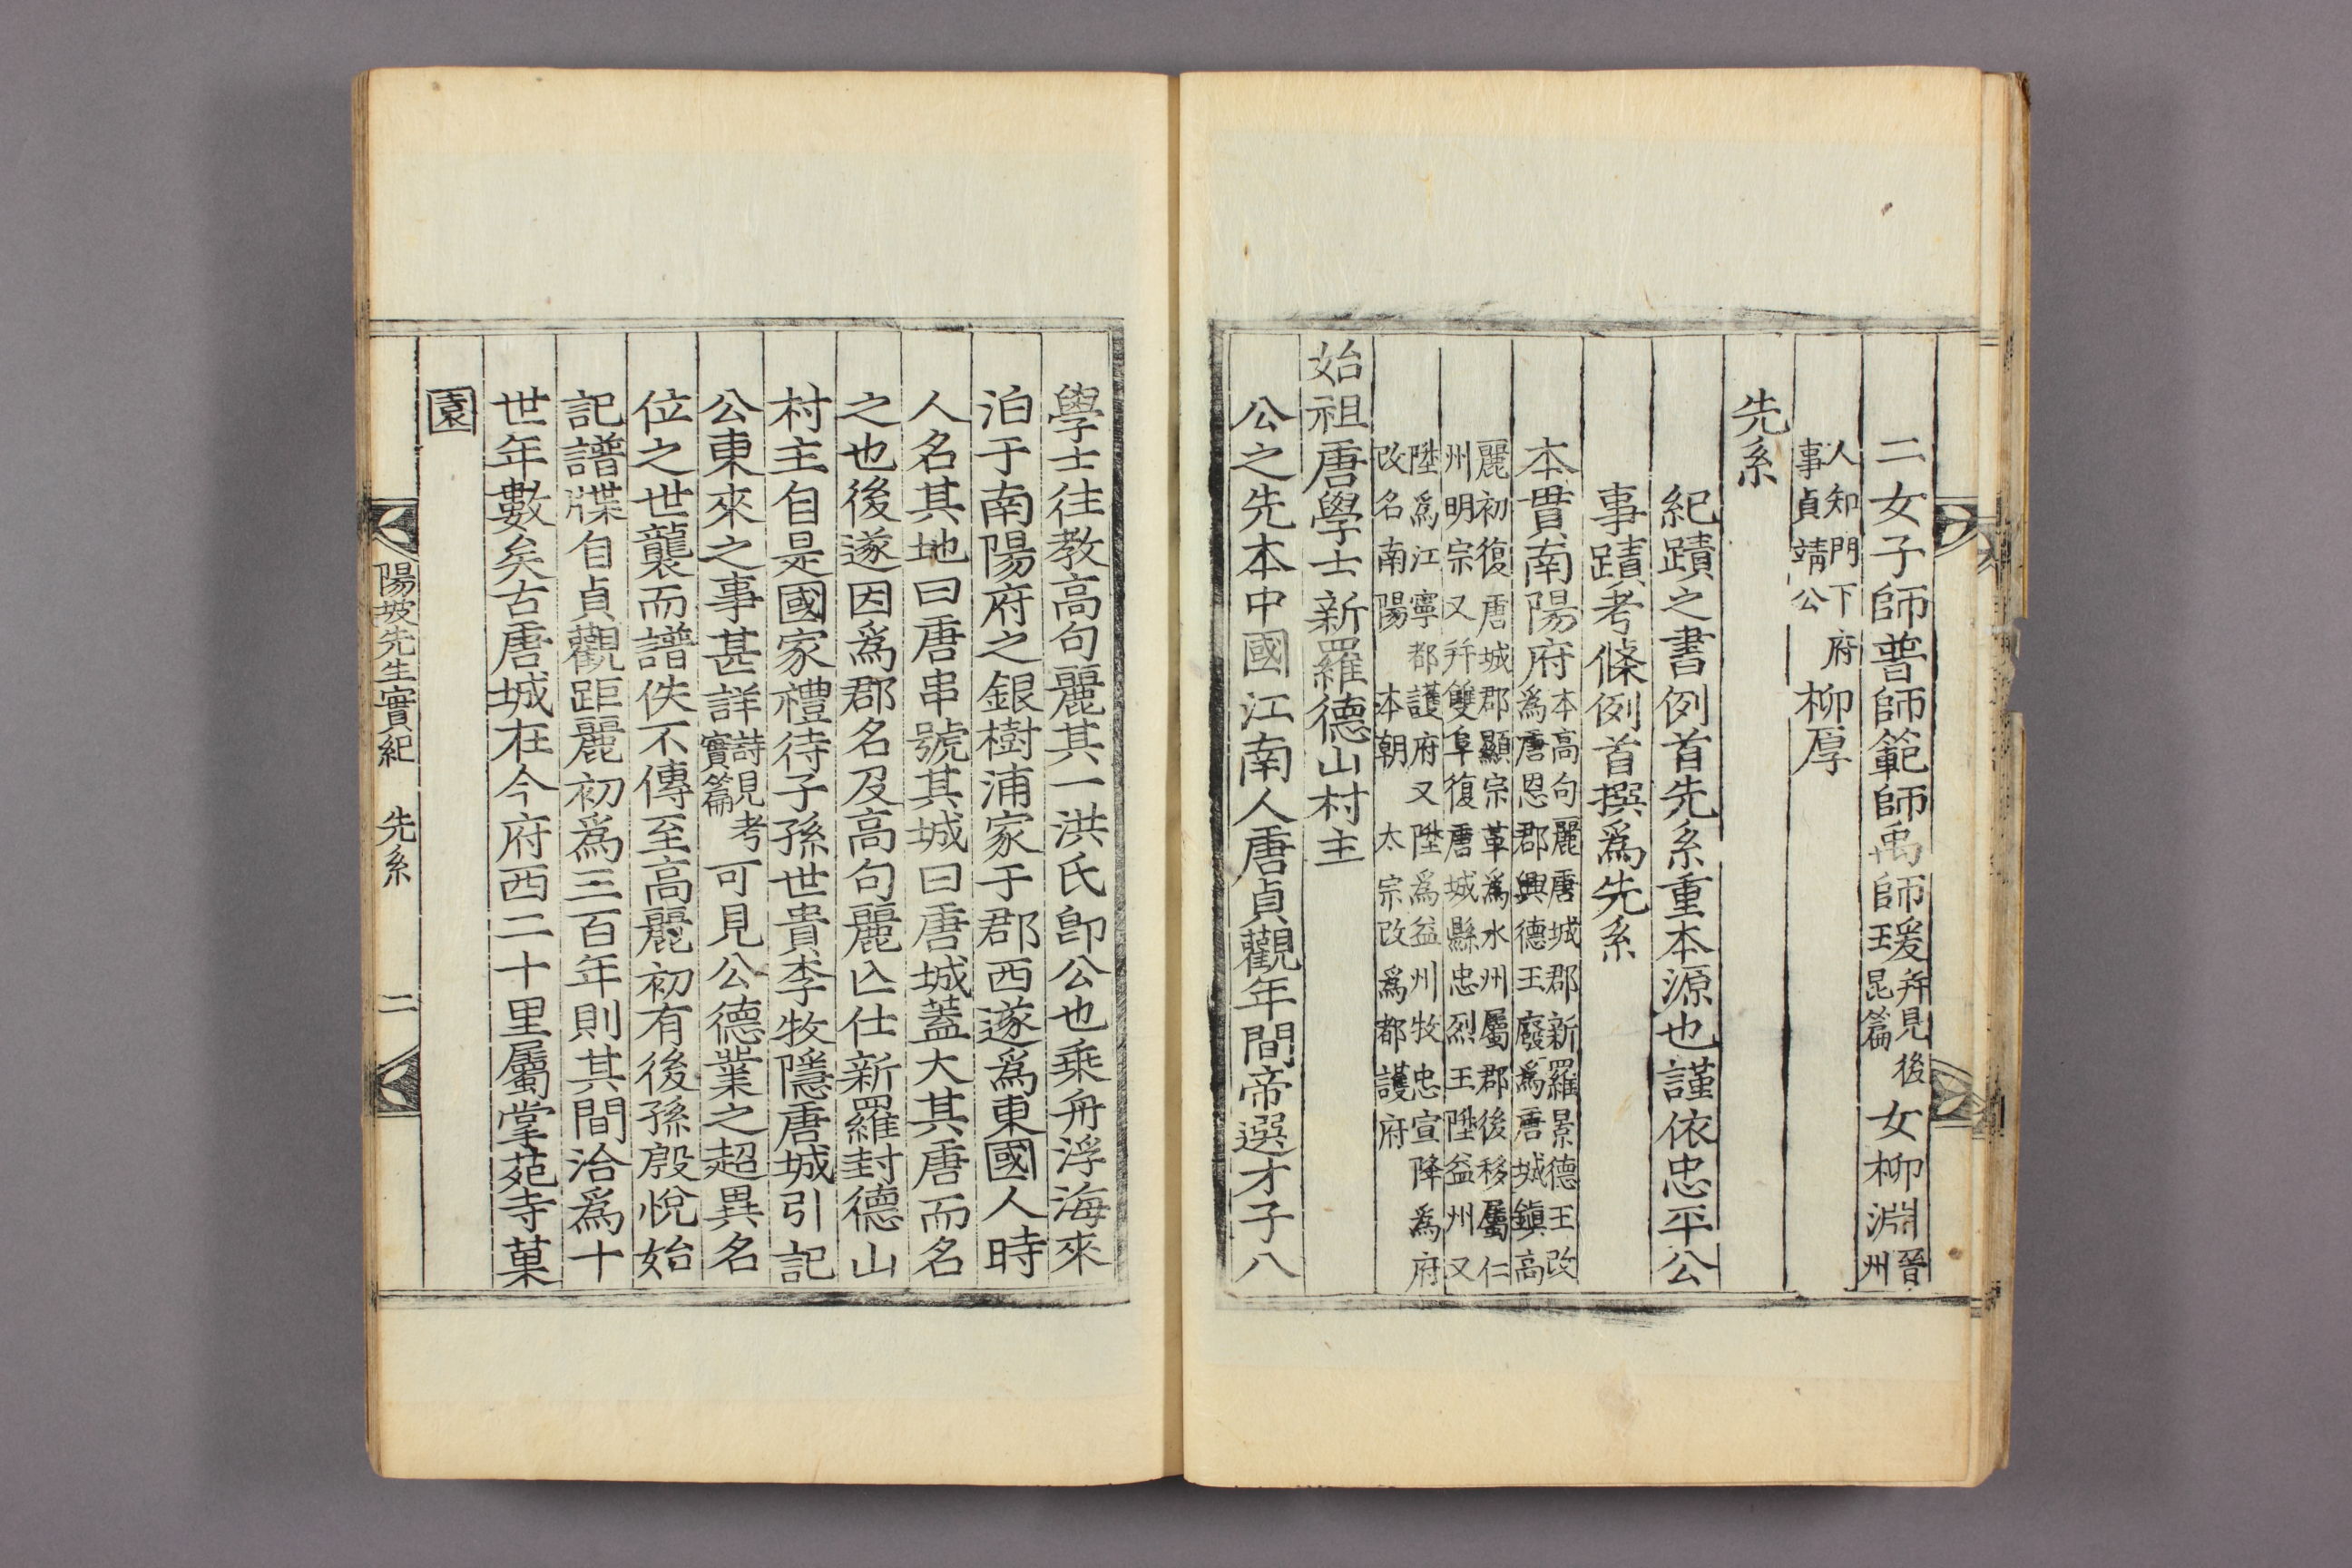 二女子師普師範師禹師瑗并見後昆篇女柳淵晉州
人知門下府事貞靖公柳厚
先系
紀蹟之書例首先系重本源也謹依忠平公
事蹟考條例首撰爲先系
本貫南陽府本高句麗唐城郡新羅景德王改爲唐恩郡興德王廢爲唐城鎭高
麗初復唐城郡顯宗革爲水州屬郡後移屬仁州明宗又幷雙阜復唐城縣忠烈王陞益州又
陞爲江寧都護府又陞爲益州牧忠宣降爲府改名南陽本朝太宗改爲都護府
始祖唐學士新羅德山村主
公之先本中國江南人唐貞觀年間帝選才子八
學士往教高句麗其一洪氏卽公也乘舟浮海來
泊于南陽府之銀樹浦家于郡西遂爲東國人時
人名其地曰唐串號其城曰唐城蓋大其唐而名
之也後遂因爲郡名及高句麗亾仕新羅封德山
村主自是國家禮待子孫世貴李牧隱唐城引記
公東來之事甚詳詩見考實篇可見公德業之超異名
位之世襲而譜佚不傳至高麗初有後孫殷悅始
記譜牒自貞觀距麗初爲三百年則其間洽爲十
世年數矣古唐城在今府西二十里屬掌苑寺菓
園
陽坡先生實紀 先系 二